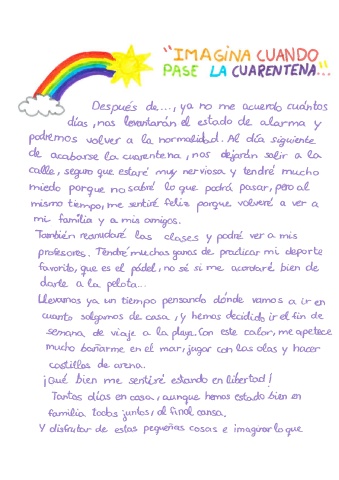 "IMAGINA CUANDO
PASE LA CUARENTENA..."
Después de..., ya no me acuerdo cuántos
días, nos levantarán el estado de alarma y
podremos volver a la normalidad. Al día siguiente
de acabarse la cuarentena, nos dejarán salir a la
calle, seguro que estaré muy nerviosa y tendré mucho
miedo porque no sabré lo que podrá pasar, pero al
mismo tiempo, me sentiré feliz porque volveré a ver a
mi familia y a mis amigos.
También reanudaré las clases y podré ver a mis
profesores. Tendré muchas ganas de practicar mi deporte
favorito, que es el pádel, no sé si me acordaré bien de
darle a la pelota...
Llevamos ya un tiempo pensando dónde vamos a ir en
cuanto salgamos de casa, y hemos decidido ir el fin de
semana de viaje a la playa. Con este calor, me apetece
mucho bañarme en el mar, jugar con las olas y hacer
castillos de arena.
¡Qué bien me sentiré estando en libertad!
Tantos días en casa, aunque hemos estado bien en
familia todos juntos, al final cansa.
Y disfrutar de estas pequeñas cosas e imaginar lo que